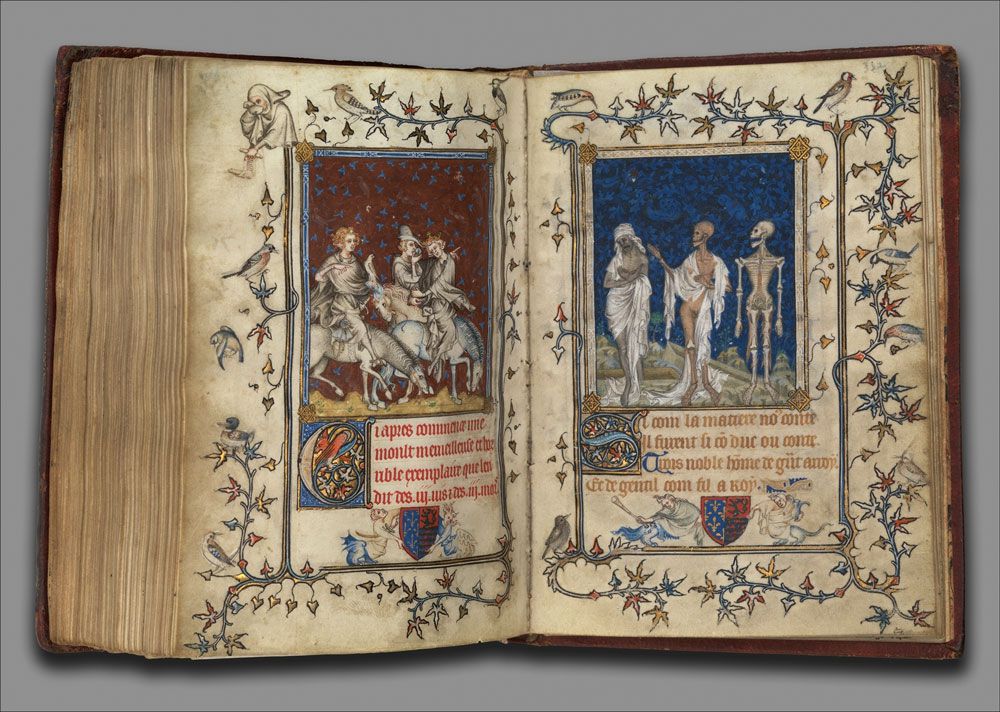 Ci apres commence une
moult merueilleuse et hor
rible exemplaire que len
dit des .iij. uis & des .iij. mors
Si com la matiere no⁹ conte
Il furent si cō duc ou conte.
Trois noble hōme de gͣnt arroy.
Et de gentil com fil a roy.